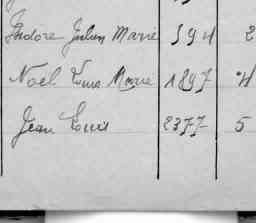 Isidore Julien Marie 594 2
Noël Louis Marie 1897 4
Jean Louis 2377 5